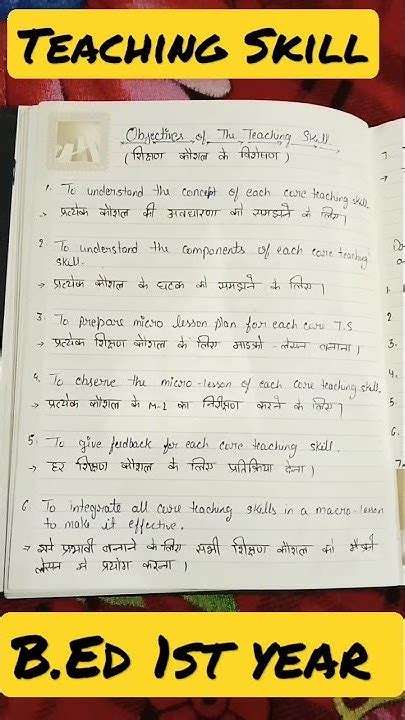 TEACHING SKILL
Objectives of The Teaching Skill.
(शिक्षण कौशल के विशेषण)
1. To understand the concept of each core teaching skill.
→ प्रत्येक कौशल की अवधारणा को समझने के लिए।
2. To understand the components of each core teaching
skill.
→ प्रत्येक कौशल के घटक को समझने के लिए।
3. To prepare micro lesson plan for each core T.S
→ प्रत्येक शिक्षण कौशल के लिए माइक्रो-लेसन बनाना।
4. To observe the micro-lesson of each core teaching skill.
→ प्रत्येक कौशल के M-L का निरीक्षण करने के लिए।
5. To give feedback for each core teaching skill.
→ हर शिक्षण कौशल के लिए प्रतिक्रिया देना।
6. To integrate all core teaching skills in a macro-lesson
to make it effective.
→ इसे प्रभावी बनाने के लिए सभी शिक्षण कौशल को मैक्रो
लेसन में प्रयोग करना।
B.ED 1ST YEAR